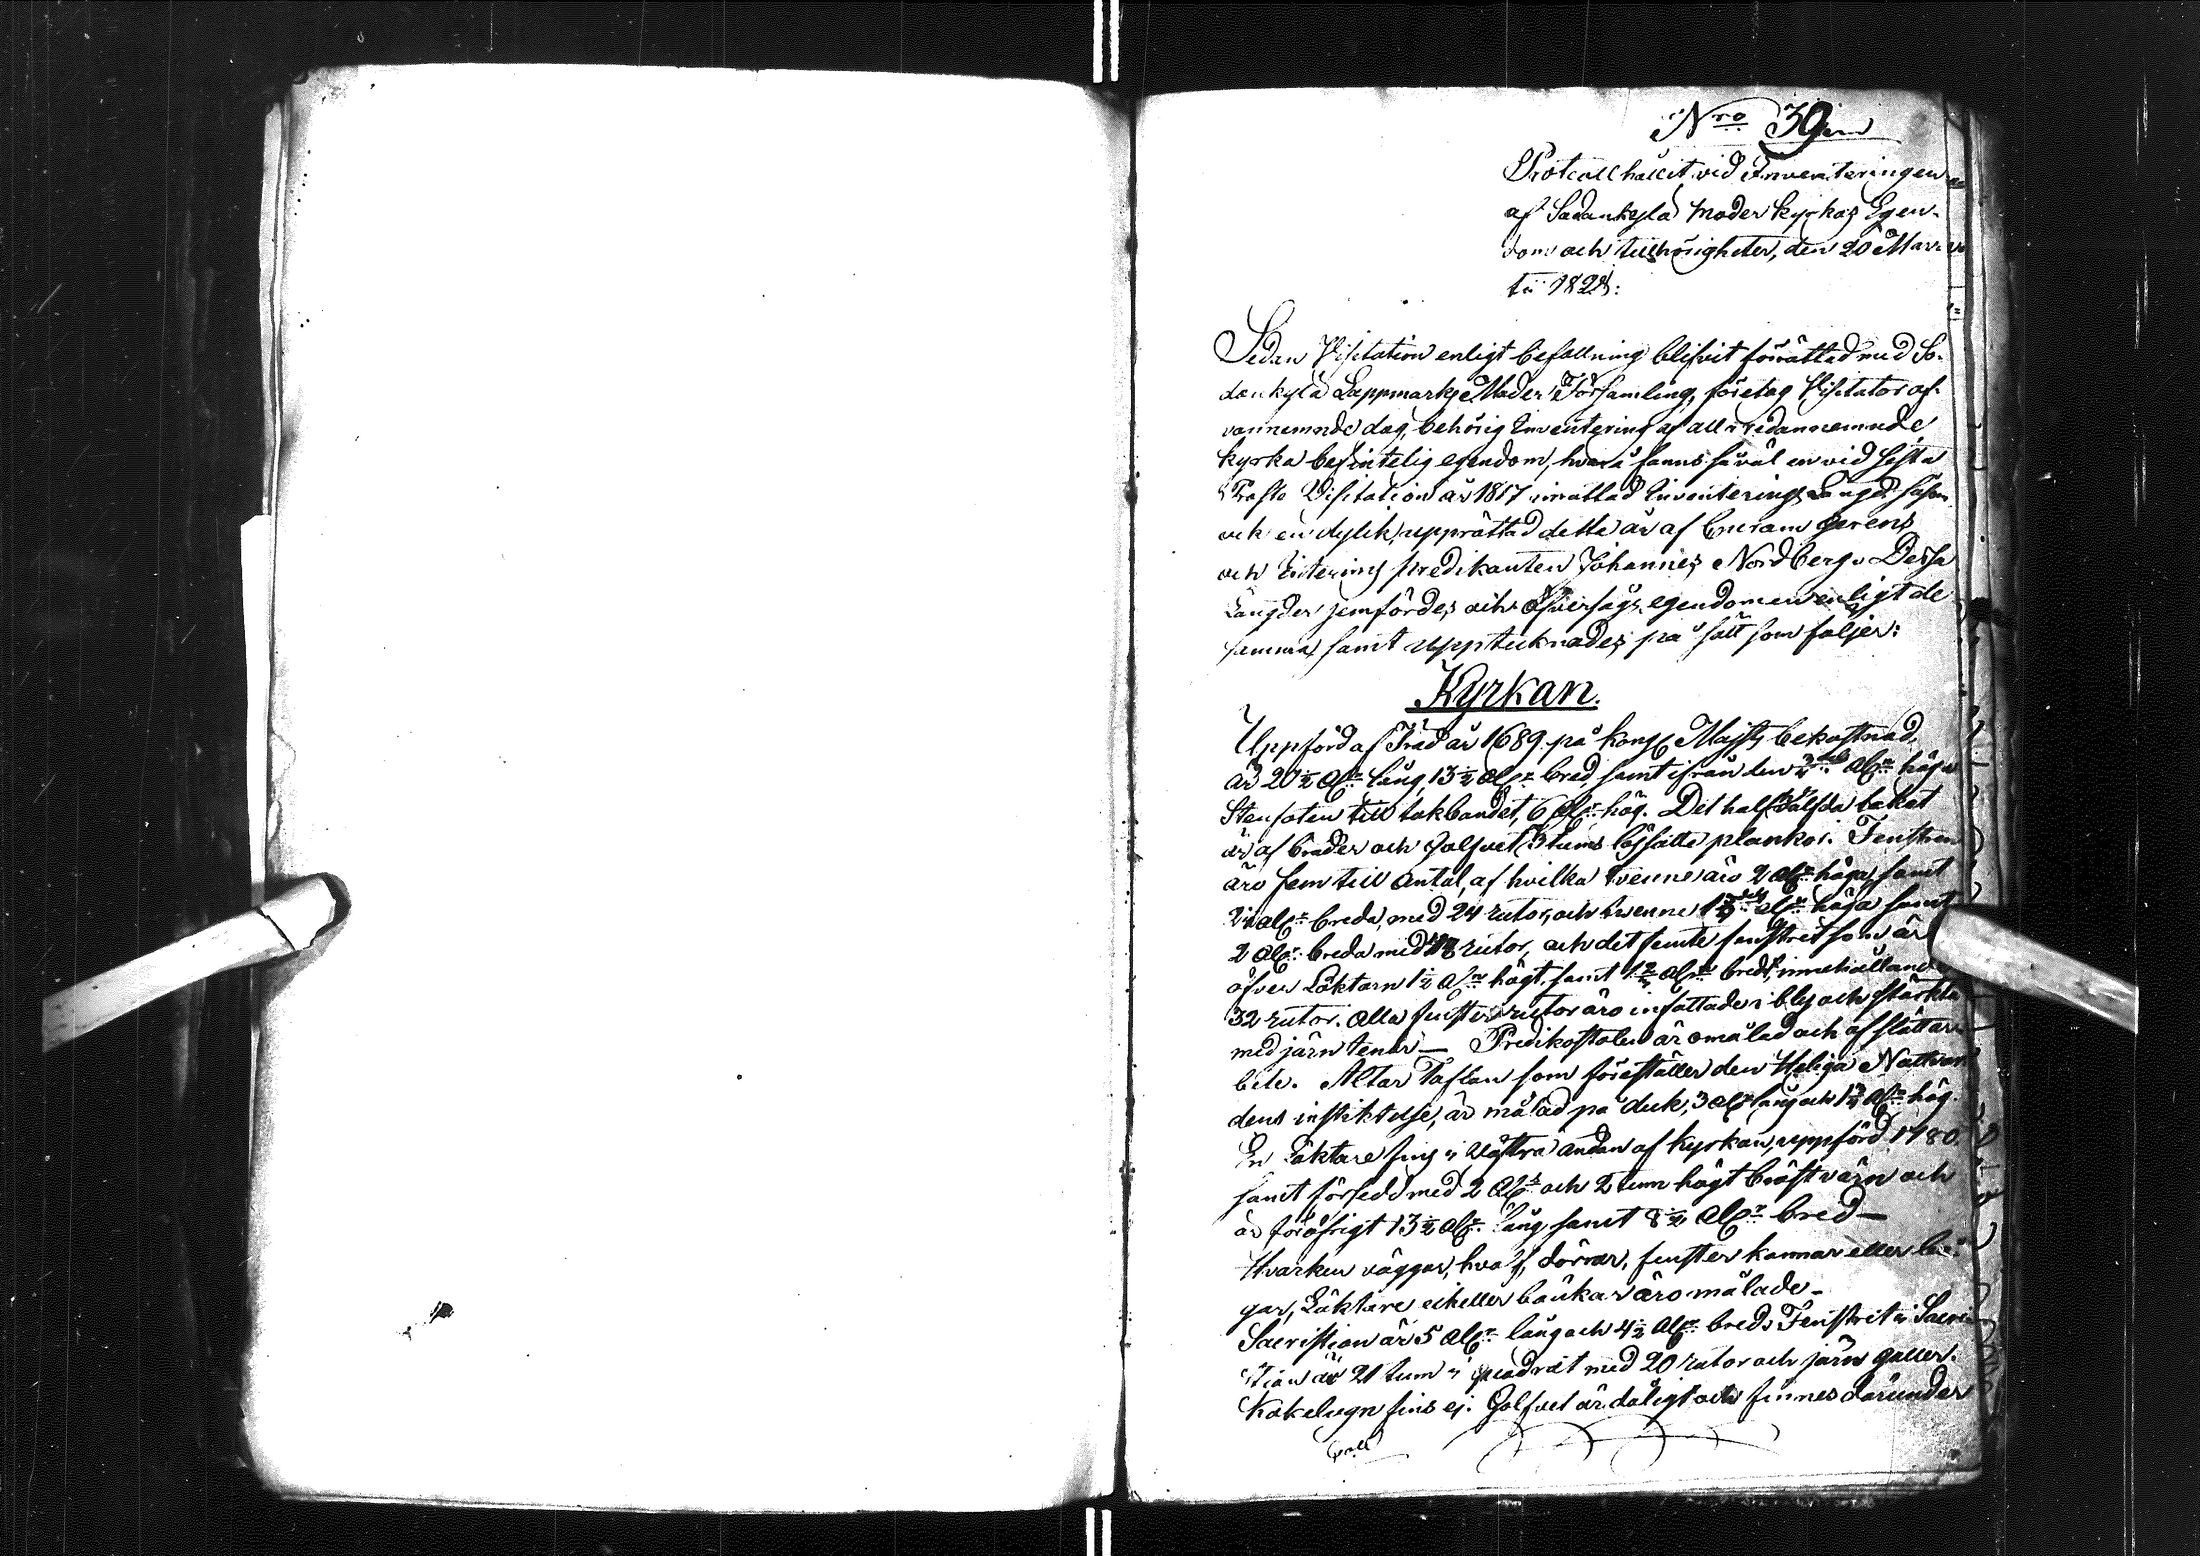 Nro 39
Protocoll hållit vid Inventeringen
af Sodankylä Moder kyrkas Egen-
dom och tillhörigheter, den 20 Mar-
tii 182
Sedan Visitation enligt befallning blifvit förrättad med So-
dankylä Lappmarks Moder Församling, företog Visitator of-
vannemnde dag, behörig Inventering af all redannemnde
kyrka befintelig egendom, hvarå fanns såväl en vid sista
Visitation år 1817 inrättad Inventerings Längd såsom
ock en dylik, upprättad detta år af
och predikanten Johannes Nordberg. Dessa
Längder jemfördes, och öfversågs egendomen enligt de
samma, samt upptecknades, på sätt som följer:
Kyrkan.
Uppförd af Träd år 1689 på Kongl Majts bekostnad,
är 20½ Alnr lång, 13½ Alnr bred, samt ifrån den Alnr höga
Stenfoten till takbandet, 6 Alnr hög. Det half taket
är af bräder och Golfvet 3 tums plankor. Fenstren
äro fem till Antal, af hvilka tvenne äro 2 Alnr höga, samt
Alnr breda, med 24 rutor, och tvenne Alnr höga samt
2 Alnr breda med rutor, och det femte fenstret som är
öfver Läktarn 1½ Alnr högt samt Alnr bredt, innehålland
32 rutor. Alla fenster rutor äro infattade i bly och stärkta
med järn tenar — Predikostolen är omålad och af slättar-
bete. Altar Taflan som föreställer den Heliga Nattvar
dens instiktelse, är målad på duk, 3 Alnr lång och Alnr hög
En Läktare fins i västra ändan af kyrkan, uppförd 1780
samt försedd med 2 Alnr och 2 tum högt bröstvärn och
är för öfrigt 13½ Alnr lång samt 8½ Alnr bred —
Hvarken väggar, hvalf, dörrar, fenster karmar eller
gar, Läktare eikeller bänkar äro målade —
Sacristian är 5 Alnr lång och 4½ Alnr bred. Fenstret i Sacri
stian är 21 tum i quadrat med 20 rutor och järn galler.
Kakelugn fins ej. Golfvet är dåligt och finnes därunder